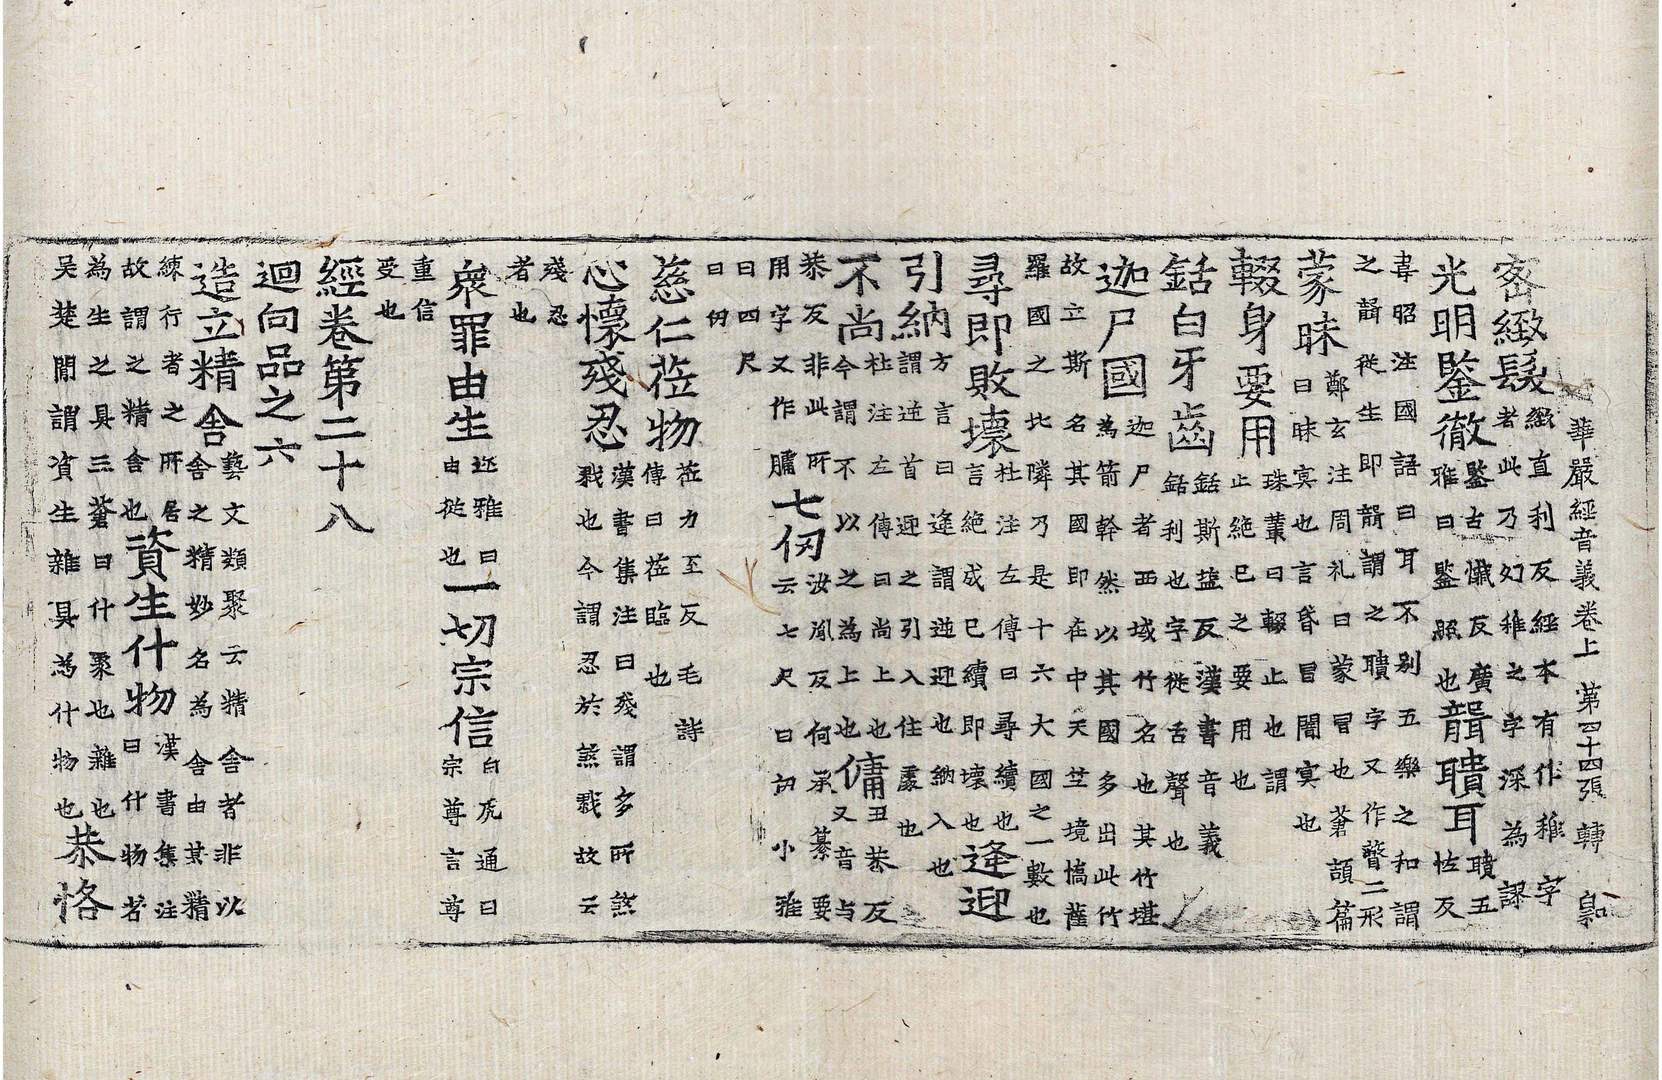 華嚴經音義卷上 第四十四張 轉
密緻髮緻直利反經本有作稚字者此乃幻稚之字深為謬
光明鑒徹鑒古懺反廣雅曰鑒照也聾聵耳聵五恠反
韋昭注國語曰耳不別五樂之和謂之聾從生即聾謂之聵字又作聲二形
蒙昧鄭玄注周礼曰蒙冒也蒼頡篇曰昧冥也言昏冒闇冥也
輟身要用珠叢曰輟止也謂止絶已之要用也
銛白牙齒銛斯葢反漢書音義銛利也字從舌聲也
迦尸國迦尸者西域竹名也其竹堪為箭幹然以其國多出此竹
故立斯名其國即在中天竺境憍薩羅國之北隣乃是十六大國之一數也
尋即敗壞杜注左傳曰尋續也言絶成已續即壞也逢迎
引納方言曰逢謂逆迎也納入也謂逆首迎之引入住處也
不尚杜注左傳曰尚上也今謂不以之為上也傭丑恭反又音与
恭反非此所用字又作七仞汝胤反何承纂要云七尺曰仞小雅
曰四尺曰仞
慈仁莅物莅力至反毛詩傳曰莅臨也
心懷殘忍漢書集注曰殘謂多所煞戮也今謂忍於煞戮故云
殘忍者也
衆罪由生迩雅曰由從也一切宗信白虎通曰宗尊言尊
重信受也
經卷第二十八
迴向品之六
造立精舍藝文類聚云精舍者非以舍之精妙名為舍由其精
練行者之所居故謂之精舍也資生什物漢書集注曰什物者
為生之具三蒼曰什聚也雜也吳楚閒謂資生雜具為什物也恭恪